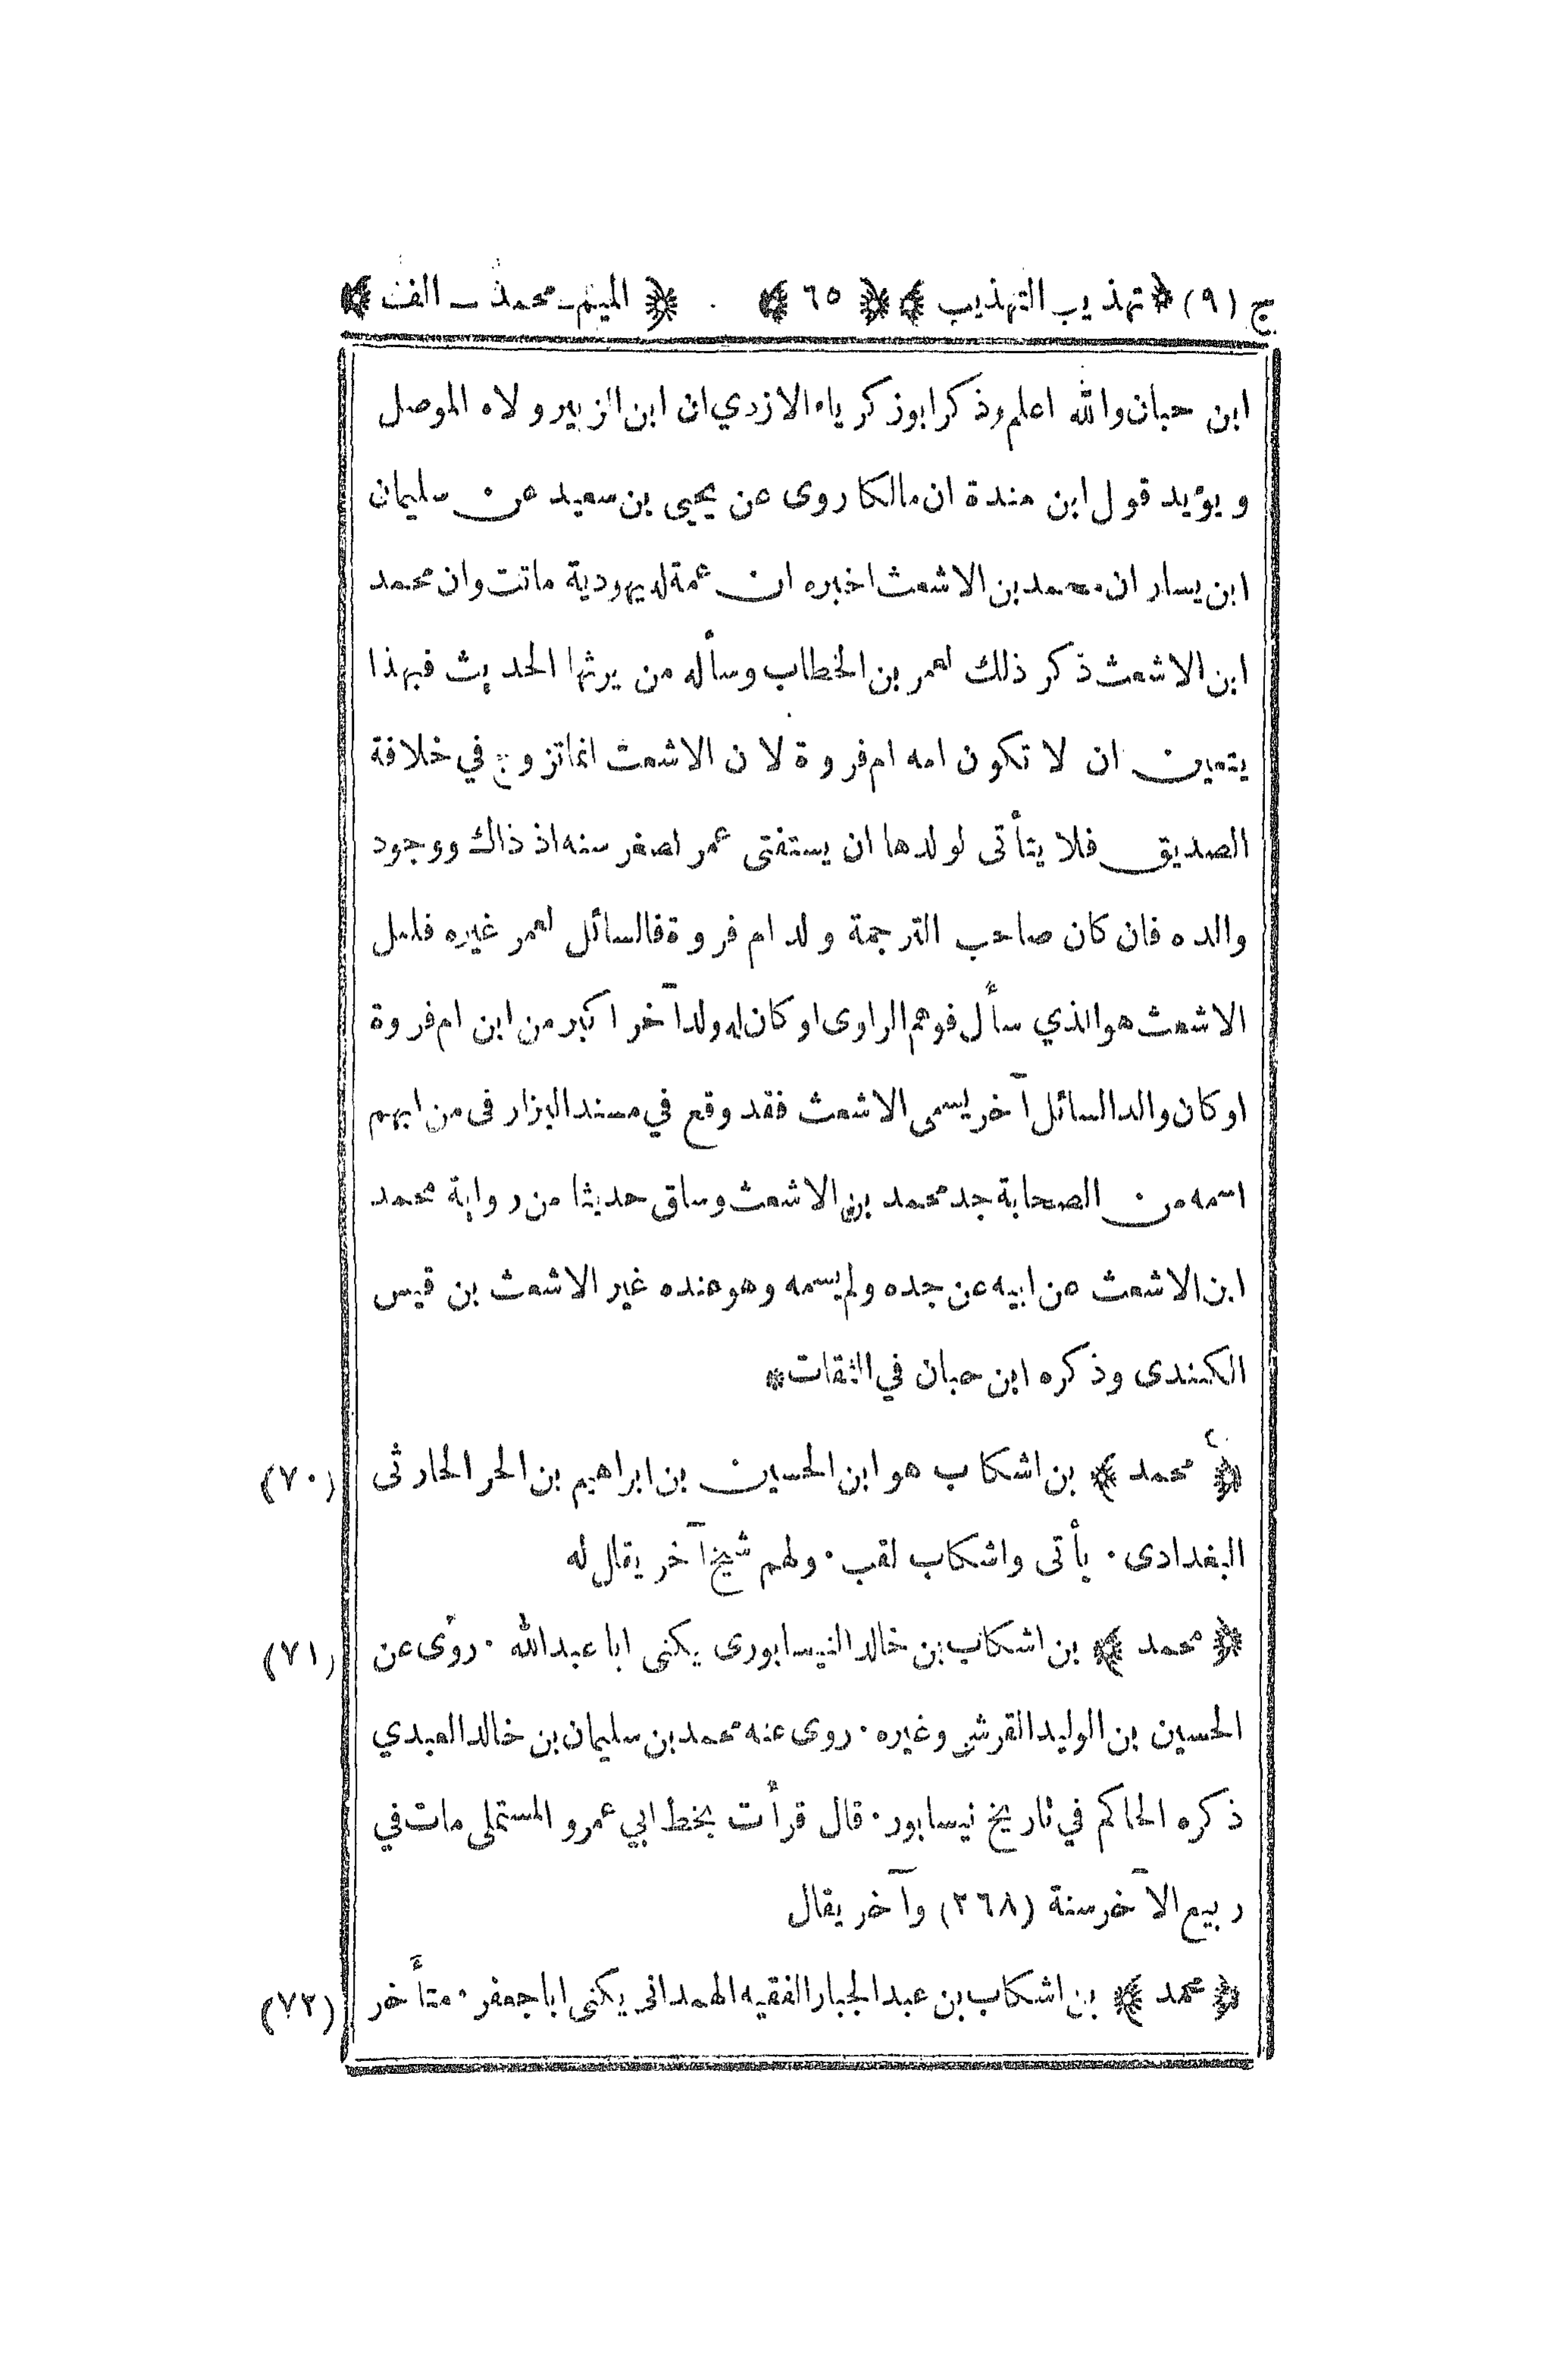 ج (٩) ﴿ تهذيب التهذيب ﴾ ﴿ ٦٥ ﴾ ﴿ الميم ـ محمد ـ الف ﴾
ابن حبان والله اعلم وذكر ابو زكرياء الازدي ان ابن الزبير ولاه الموصل
ويؤيد قول ابن مندة ان مالكا روى عن يحيى بن سعيد عن سليمان
ابن يسار ان محمد بن الاشعث اخبره ان عمة له يهودية ماتت وان محمد
ابن الاشعث ذكر ذلك لعمر بن الخطاب وسأله من يرثها الحديث فبهذا
يتعين ان لا تكون امه ام فروة لان الاشعث انما تزوج في خلافة
الصديق فلا يتأتى لولدها ان يستفتى عمر لصغر سنه اذ ذاك ووجود
والده فان كان صاحب الترجمة ولد ام فروة فالسائل لعمر غيره فلعل
الاشعث هو الذي سأل فوهم الراوى او كان له ولد آخر اكبر من ابن ام فروة
او كان والد السائل آخر يسمى الاشعث فقد وقع في مسند البزار فى من ابهم
اسمه من الصحابة جد محمد بن الاشعث وساق حديثا من رواية محمد
ابن الاشعث عن ابيه عن جده ولم يسمه وهو عنده غير الاشعث بن قيس
الكندى وذكره ابن حبان في الثقات*
﴿ محمد ﴾ بن اشكاب هو ابن الحسين بن ابراهيم بن الحر الحارثى (٧٠)
البغدادى ٠ يأتى واشكاب لقب ٠ ولهم شيخ آخر يقال له
﴿ محمد ﴾ بن اشكاب بن خالد النيسابورى يكنى ابا عبد الله ٠ روى عن (٧١)
الحسين بن الوليد القرشي وغيره ٠ روى عنه محمد بن سليمان بن خالد العبدي
ذكره الحاكم في تاريخ نيسابور ٠ قال قرأت بخط ابي عمرو المستملى مات في
ربيع الآخر سنة (٢٦٨) وآخر يقال
﴿ محمد ﴾ بن اشكاب بن عبد الجبار الفقيه الهمدانى يكنى ابا جعفر ٠ متأخر (٧٢)